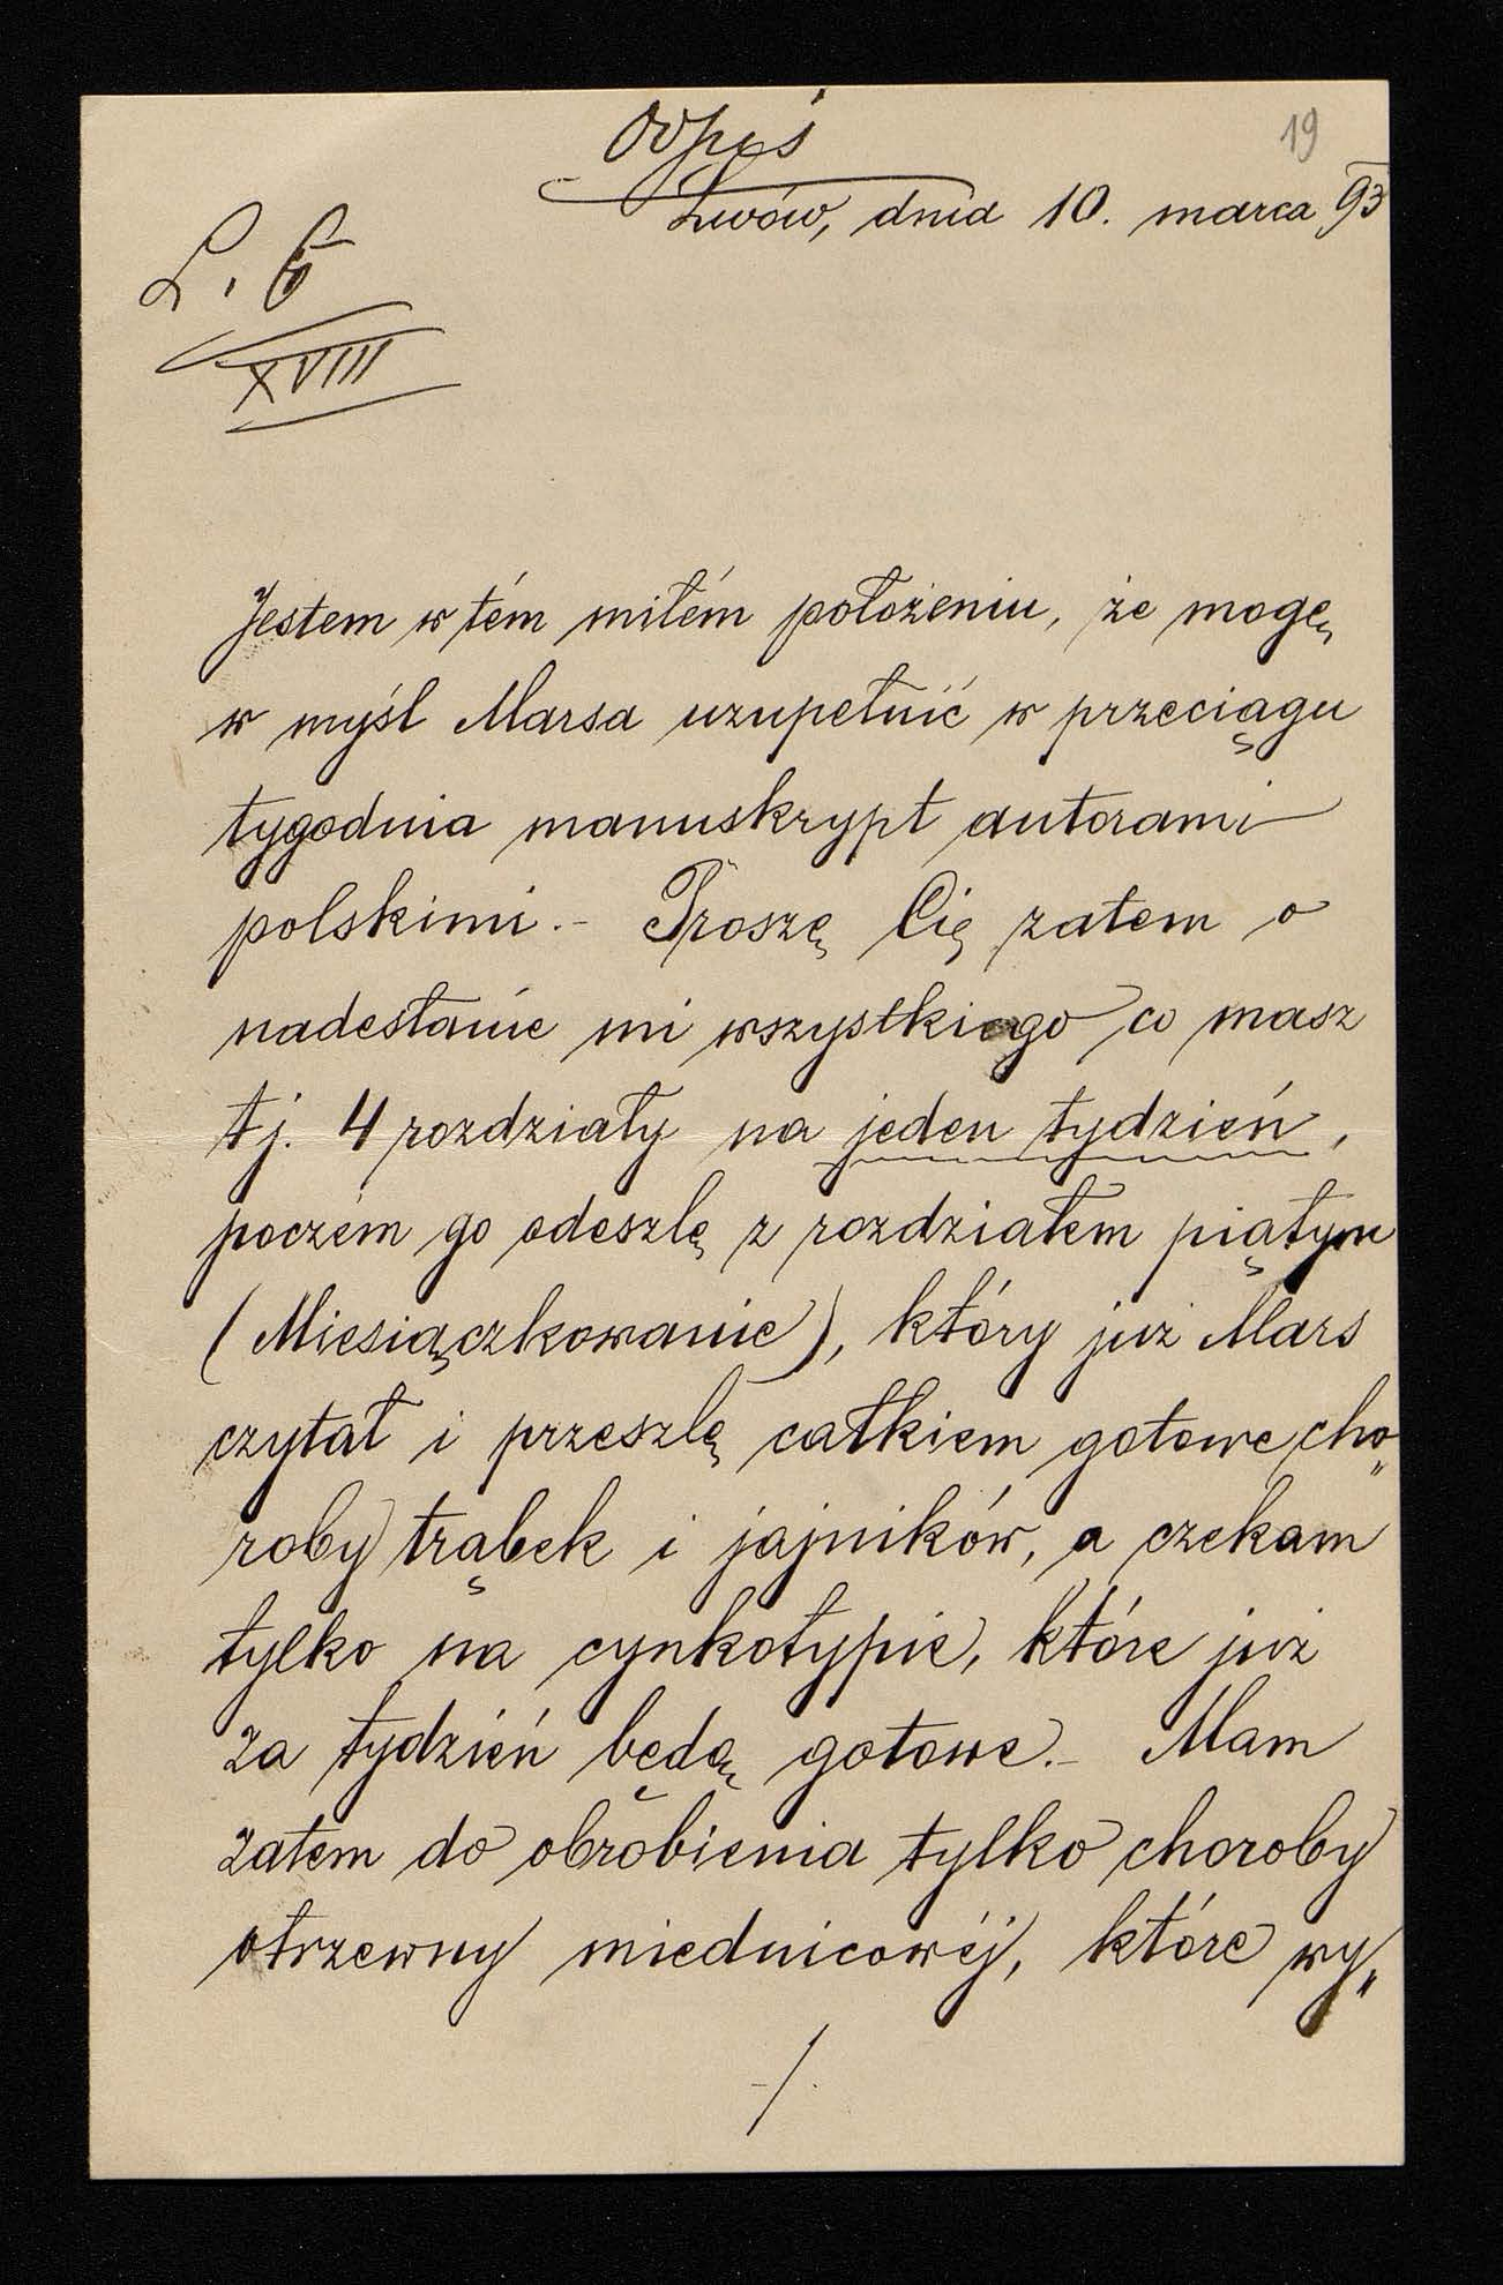 Odpis
19
Lwów, dnia 10. marca 93
L. 6
XVIII
Jestem w tém miłém położeniu, że mogę
w myśl Marsa uzupełnić w przeciągu
tygodnia manuskrypt autorami
polskimi. - Proszę Cię zatem o
nadesłanie mi wszystkiego co masz
tj. 4 rozdziały na jeden tydzień,
poczém go odeszlę z rozdziałem piątym
(Miesiączkowanie), który już Mars
czytał i przeszlę całkiem gotowe cho„
roby trąbek i jajników, a czekam
tylko na cynkotypie, które już
za tydzień będą gotowe. - Mam
zatem do obrobienia tylko choroby
otrzewny miednicowéj, które wy„
-/.